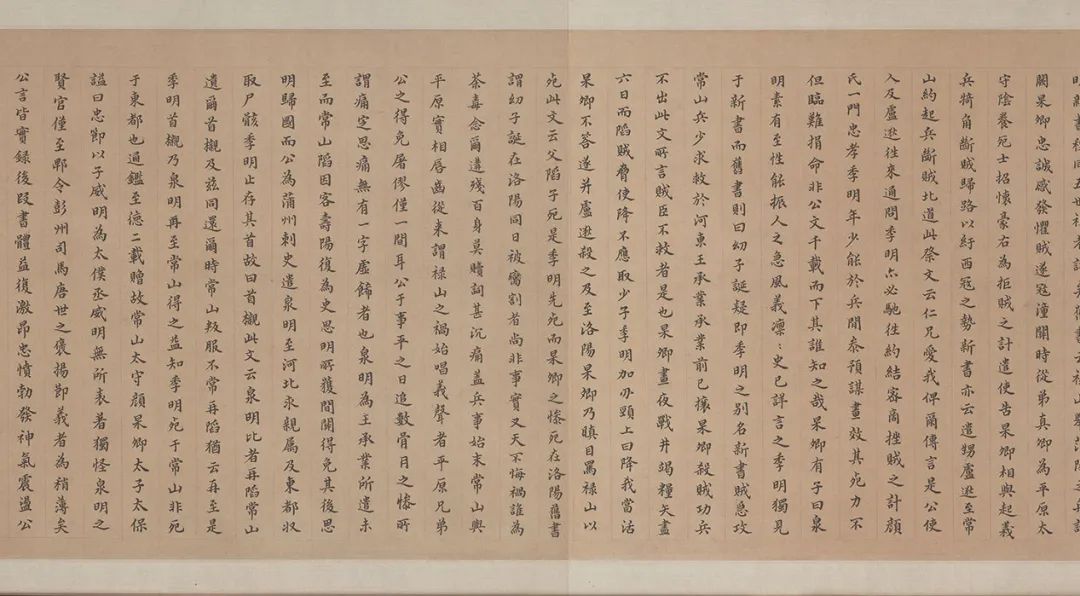 關杲卿忠誠感發懼賊遂寇潼關時從弟真卿為平原太
守陰養死士招懷豪右為拒賊之計遣使告杲卿相與起義
兵犄角斷賊歸路以紓西寇之勢新書亦云遣甥盧逖至常
山約起兵斷賊北道此祭文云仁兄愛我俾爾傳言是公使
入及盧逖徃來通問季明亦必馳徃約結密商挫賊之計顏
氏一門忠孝季明年少能於兵間泰預謀畫效其死力不
但臨難捐命非公文千載而下其誰知之哉杲卿有子曰泉
明素有至性能振人之急風義凛〻史已詳言之季明獨見
于新書而舊書則曰幼子誕疑即季明之别名新書賊急攻
常山兵少求救於河東王承業承業前已攘杲卿殺賊功兵
不出此文所言賊臣不救者是也杲卿晝夜戰井竭糧矢盡
六日而陷賊脅使降不應取少子季明加刃頸上曰降我當活
杲卿不荅遂并盧逖殺之及至洛陽杲卿乃瞋目罵禄山以
死此文云父陷子死是季明先死而杲卿之慘死在洛陽舊書
謂幼子誕在洛陽同日被臠割者尚非事實又天不悔禍誰為
荼毒念爾遘殘百身莫贖詞甚沉痛盖兵事始末常山與
平原實相唇齒從来謂禄山之禍始唱義聲者平原兄弟
公之得免屠僇僅一間耳公于事平之日追數骨月之慘所
謂痛定思痛無有一字虛餙者也泉明為王承業所遣未
至而常山陷因客壽陽復為史思明所獲間關得免其後思
明歸國而公為蒲州刺史遣泉明至河北求親属及東都収
取尸骸季明止存其首故曰首櫬此文云泉明比者再陷常山
遺爾首櫬及兹同還爾時常山叛服不常再陷猶云再至是
季明首櫬乃泉明再至常山得之益知季明死于常山非死
于東都也通鑑至德二載贈故常山太守顏杲卿太子太保
謚曰忠節以子威明為太僕丞威明無所表著獨怪泉明之
賢官僅至郫令彭州司馬唐世之褒揚節義者為稍薄矣
公言皆實録後段書體益復激昂忠憤勃發神氣震盪公